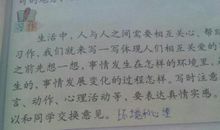 习作
生活中，人与人之间需要相互关心，帮
习作，我们就来写一写体现人们相互关爱的
之前先想一想，事情发生在怎样的环境里，
生的，事情发展变化的过程怎样。写时注意
言、动作、心理活动等，要表达真情实感。
以和同学交换意见。